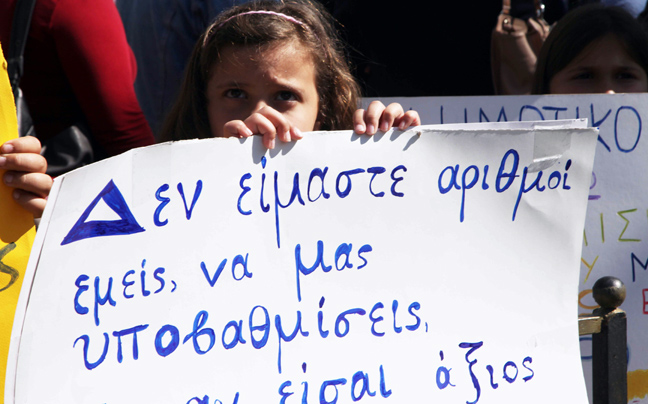 Δεν είμαστε αριθμοί
εμείς, να μας
υποβαθμίσεις,
είσαι άξιος
ΔΗΜΟΤΙΚΟ